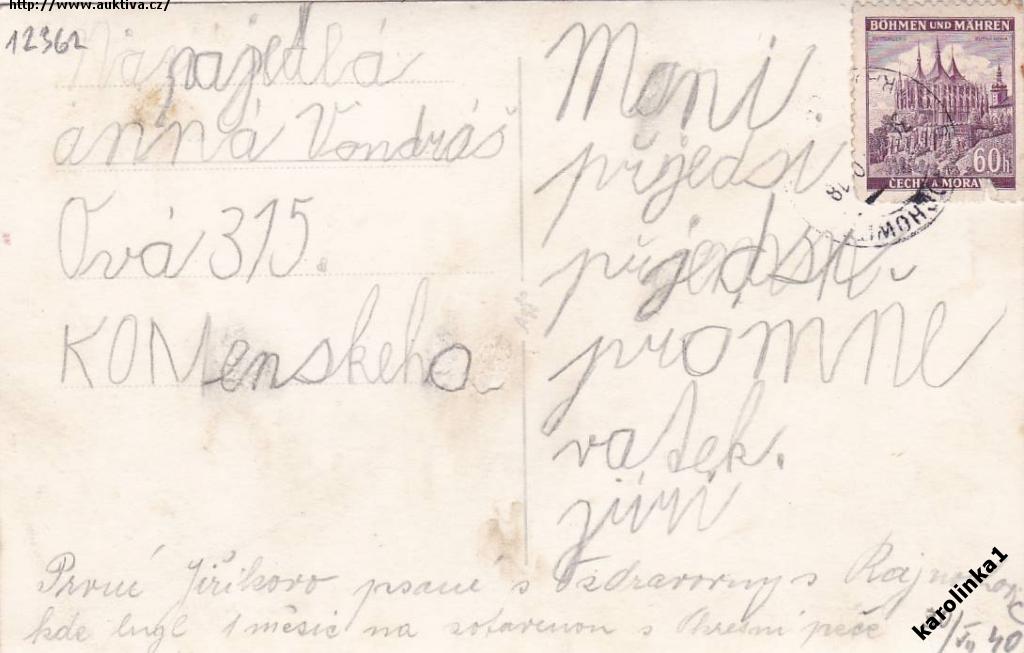 http://www.auktiva.cz/
12362
Napajedlá
anná Vondráš
Ová 315.
KOMenskeho
Moni.
přijedsi
přijedsi
promne
vatek.
jiři
BÖHMEN UND MÄHREN
60h
ČECHY A MORA
Prvné Jiříkovo psané s Ozdravovny s
kde byl 1 měsíc na zotavenou s Okresní péče
40
karolinka1